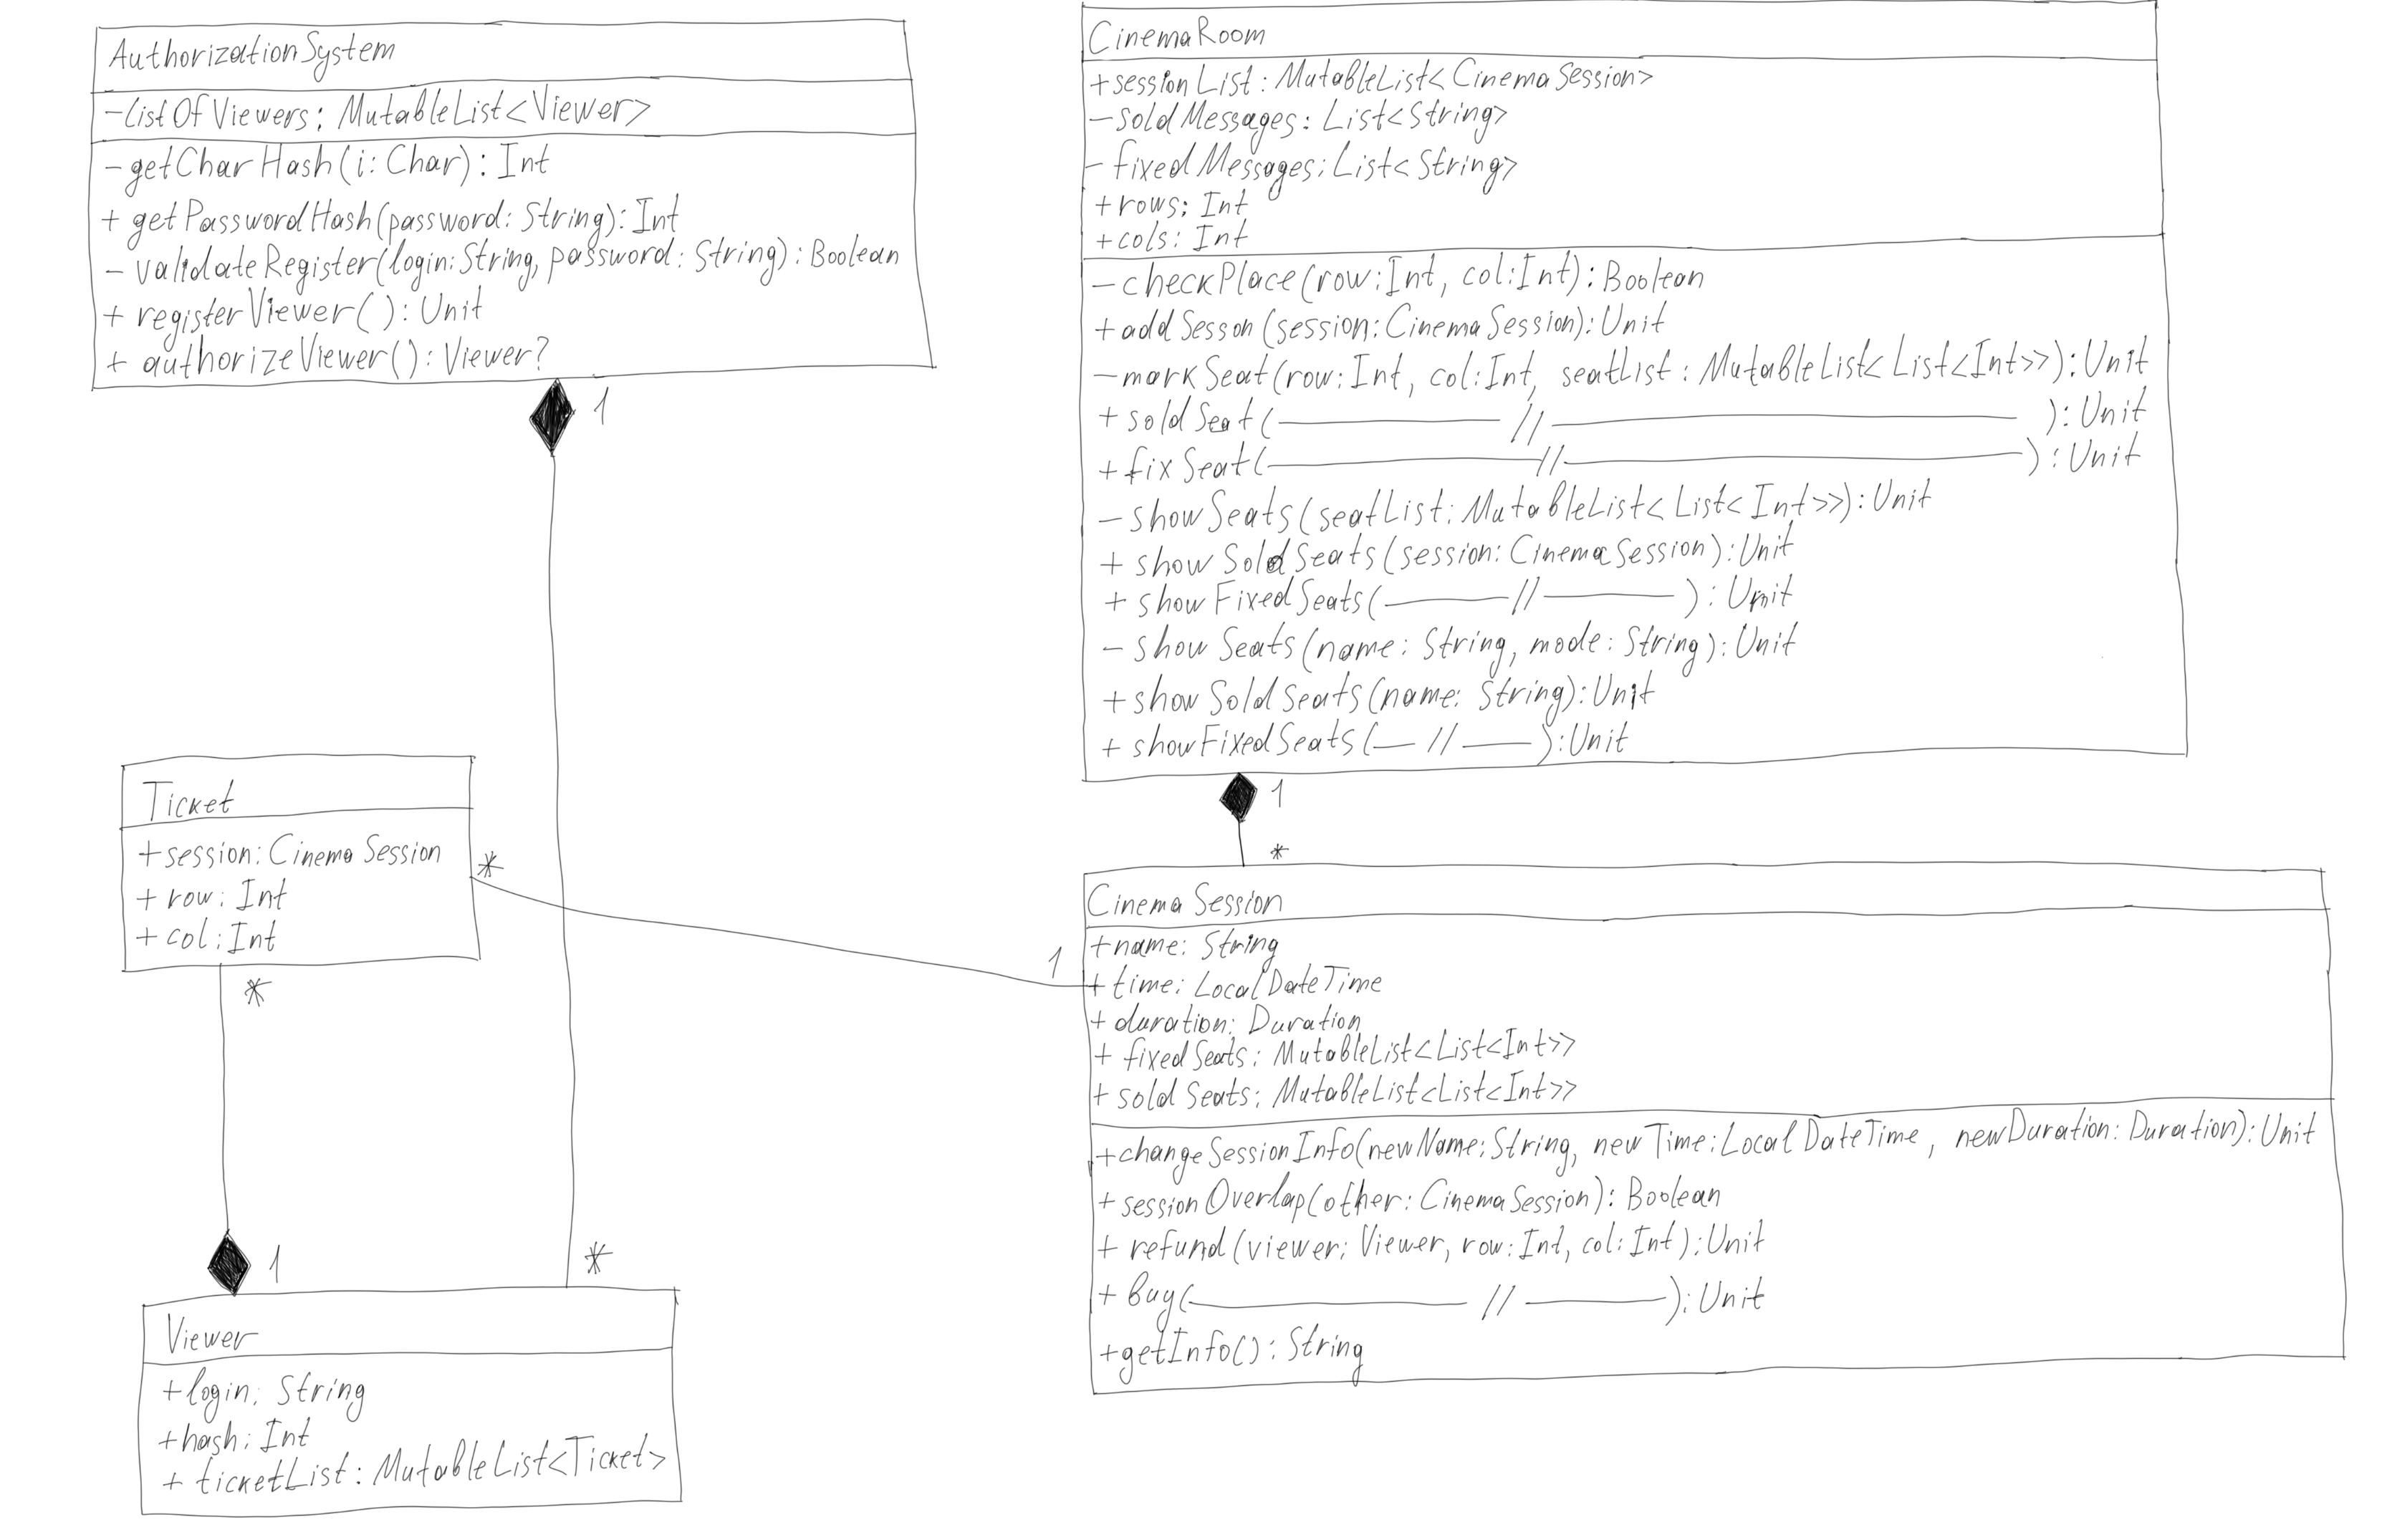 AuthorizationSystem
-listOfViewers: MutableList<Viewer>
- getCharHash(i: Char): Int
+ getPasswordHash(password: String): Int
- validateRegister(login: String, password: String): Boolean
+ registerViewer(): Unit
+ authorizeViewer(): Viewer?
1
*
CinemaRoom
+sessionList: MutableList<CinemaSession>
- soldMessages: List<String>
- fixedMessages: List<String>
+rows: Int
+cols: Int
- checkPlace(row: Int, col: Int): Boolean
+ addSesson(session: CinemaSession): Unit
- markSeat(row: Int, col: Int, seatList: MutableList<List<Int>>): Unit
+ soldSeat(—— // ——): Unit
+ fixSeat(—— // ——): Unit
- showSeats(seatList: MutableList<List<Int>>): Unit
+ showSoldSeats(session: CinemaSession): Unit
+ showFixedSeats(—— // ——): Unit
- showSeats(name: String, mode: String): Unit
+ showSoldSeats(name: String): Unit
+ showFixedSeats(— // —): Unit
1
*
Ticket
+session: CinemaSession
+ row: Int
+ col: Int
*
1
*
1
Viewer
+login: String
+hash: Int
+ ticketList: MutableList<Ticket>
CinemaSession
+name: String
+ time: LocalDateTime
+ duration: Duration
+ fixedSeats: MutableList<List<Int>>
+ soldSeats: MutableList<List<Int>>
+changeSessionInfo(newName: String, newTime: LocalDateTime, newDuration: Duration): Unit
+ sessionOverlap(other: CinemaSession): Boolean
+ refund(viewer: Viewer, row: Int, col: Int): Unit
+ buy(—— // ——): Unit
+getInfo(): String